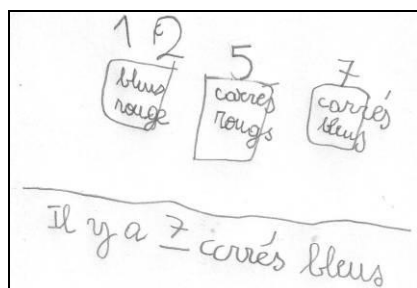 12 5 7
bleus rouge
carrés rougs
carrés bleus
Il y a 7 carrés bleus